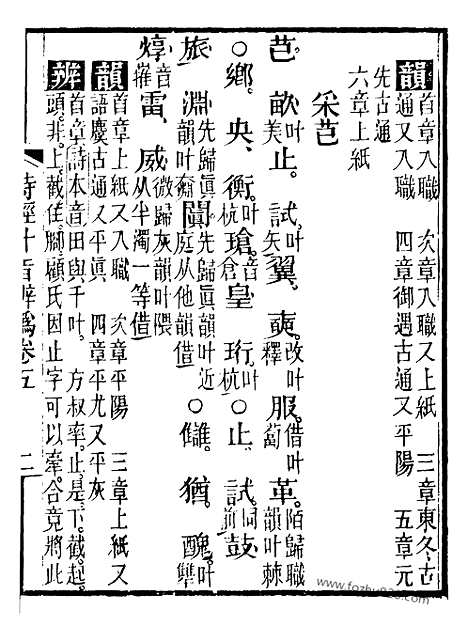 韻 首章入職 次章入職又上紙 三章東冬古
通又入職 四章御遇古通又平陽 五章元
先古通
六章上紙
采芑
芑 畝叶美 止。試叶矢 翼。奭改叶釋 服借叶蔔 革。陌歸職韻叶棘
○鄉。央。衡。叶杭 瑲。音倉 皇 珩叶杭 ○止。試同前 鼓
旅 淵先歸真韻叶奫 闐先歸真韻叶近庭從他韻借 ○讎。猶。醜叶犨
焞音 雷。威微歸灰韻叶隈從半濁一等借
韻 首章上紙又入職 次章平陽 三章上紙又
語麌古通又平真 四章平尤又平灰
辨 首章詩本音田與千叶。方叔率止。是下截。起
頭。非上截住腳顧氏因止字可以牽合竟將此
詩經叶音辨譌卷五 二
www.fozhu920.com